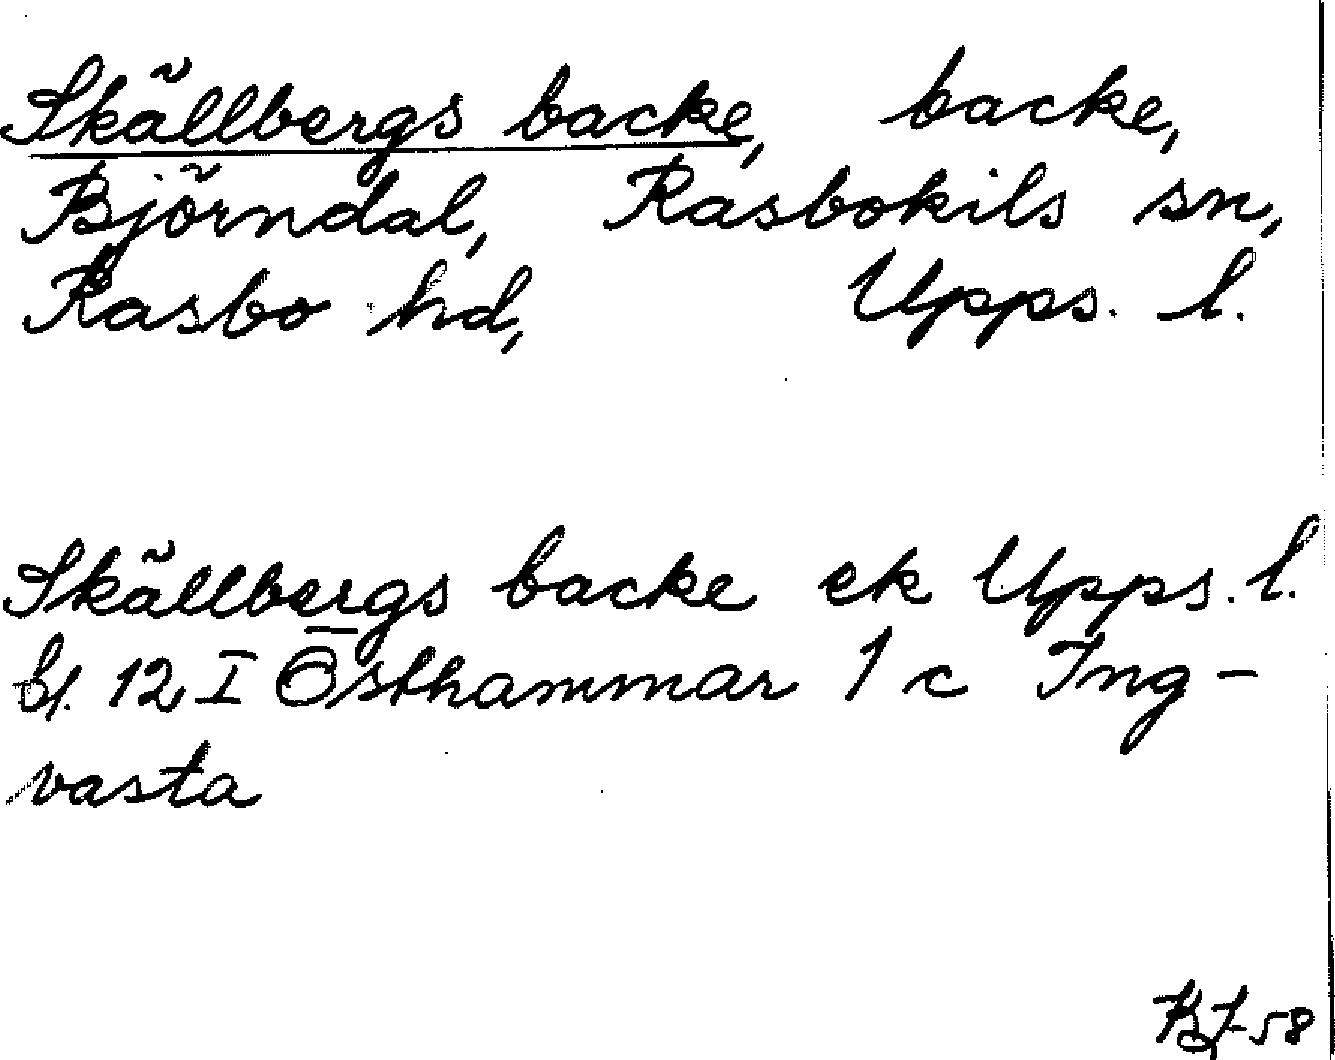 Skällbergs backe, backe,
Björndal, Rasbokils sn,
Rasbo hd, Upps. l.
Skällbergs backe ek Upps. l.
bl. 12 I Östhammar 1 c Ing-
vasta
58